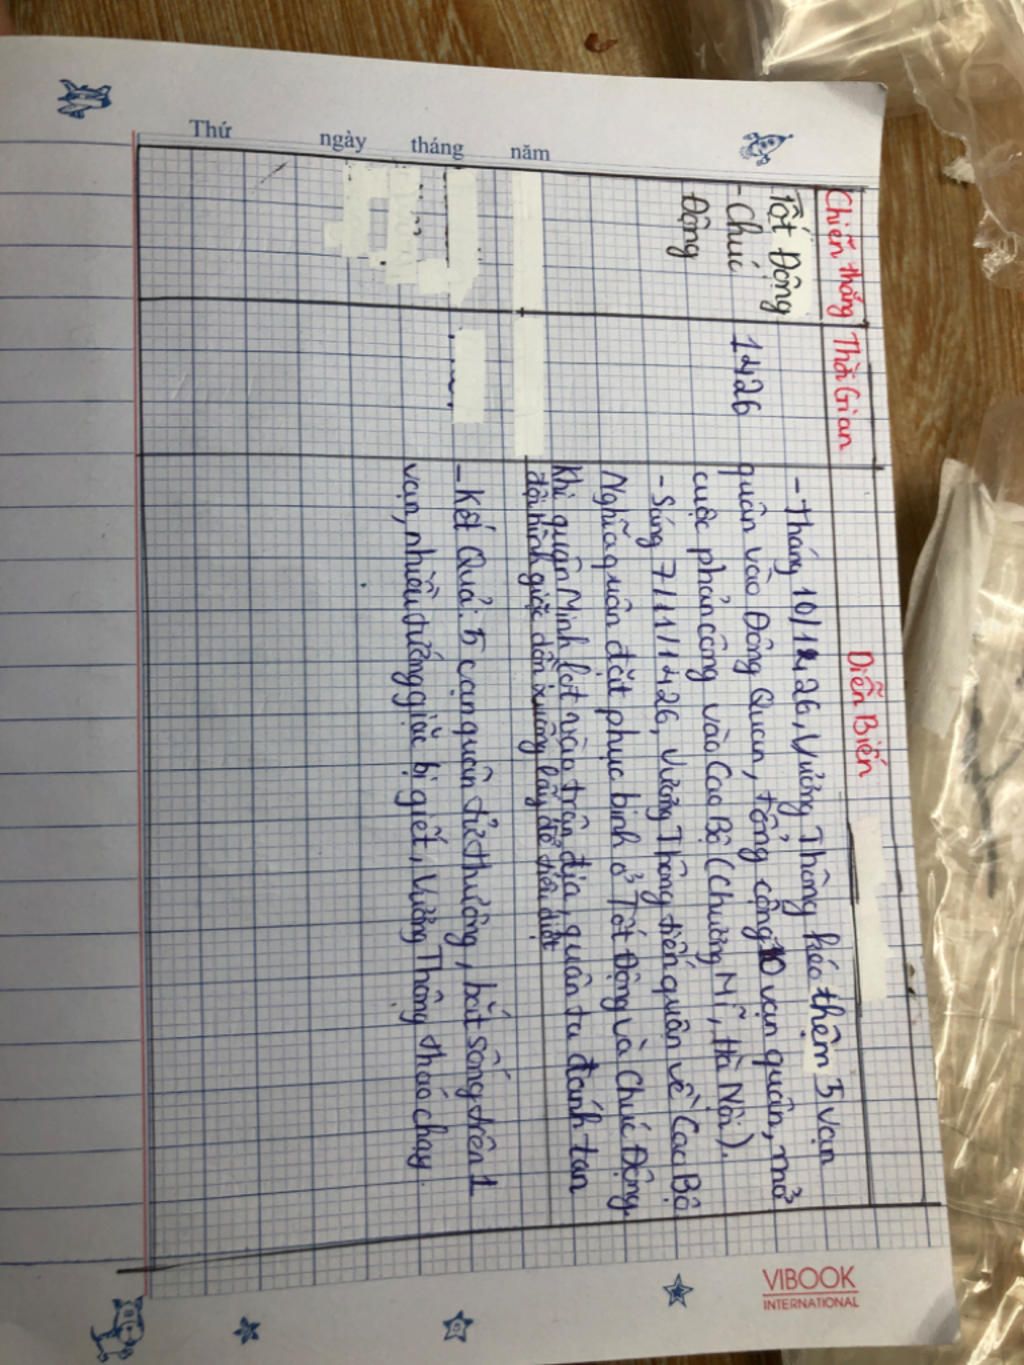 Thứ ngày tháng năm
Chiến thắng Thời Gian Diễn Biến
Tốt Động
- Chúc
Động
1426
- Tháng 10/1426, Vương Thông kéo thêm 5 vạn
quân vào Đông Quan, tổng cộng 10 vạn quân, mở
cuộc phản công vào Cao Bộ (Chương Mĩ, Hà Nội).
- Sáng 7/11/1426, Vương Thông tiến quân về Cao Bộ
Nghĩa quân đặt phục binh ở Tốt Động và Chúc Động.
Khi quân Minh lọt vào trận địa, quân ta đánh tan
đội hình giặc dồn xuống lầy để tiêu diệt
- Kết Quả: 5 vạn quân tử thương, bắt sống trên 1
vạn, nhiều tướng giặc bị giết, Vương Thông tháo chạy.
VIBOOK
INTERNATIONAL